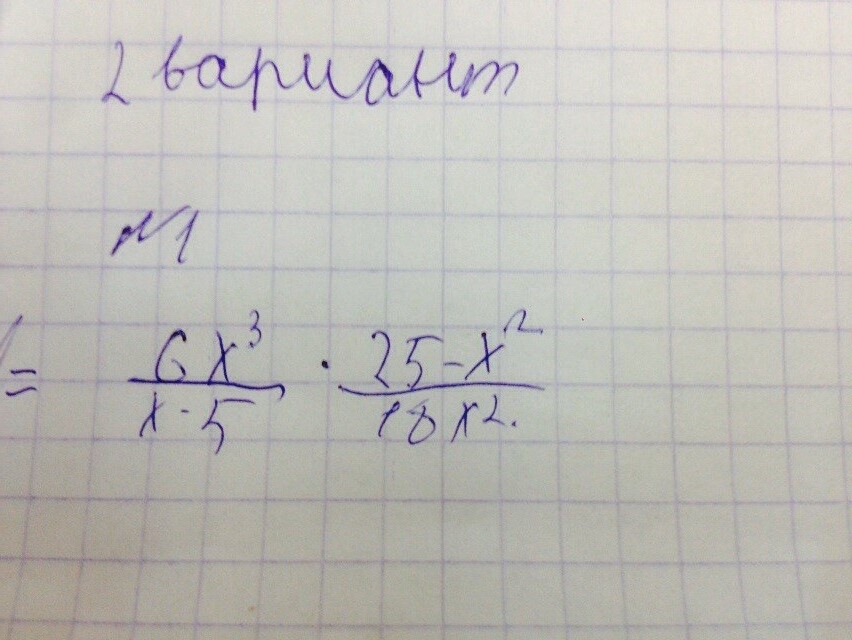 2 вариант
№1
= 6x³/x-5 · 25-x²/18x².